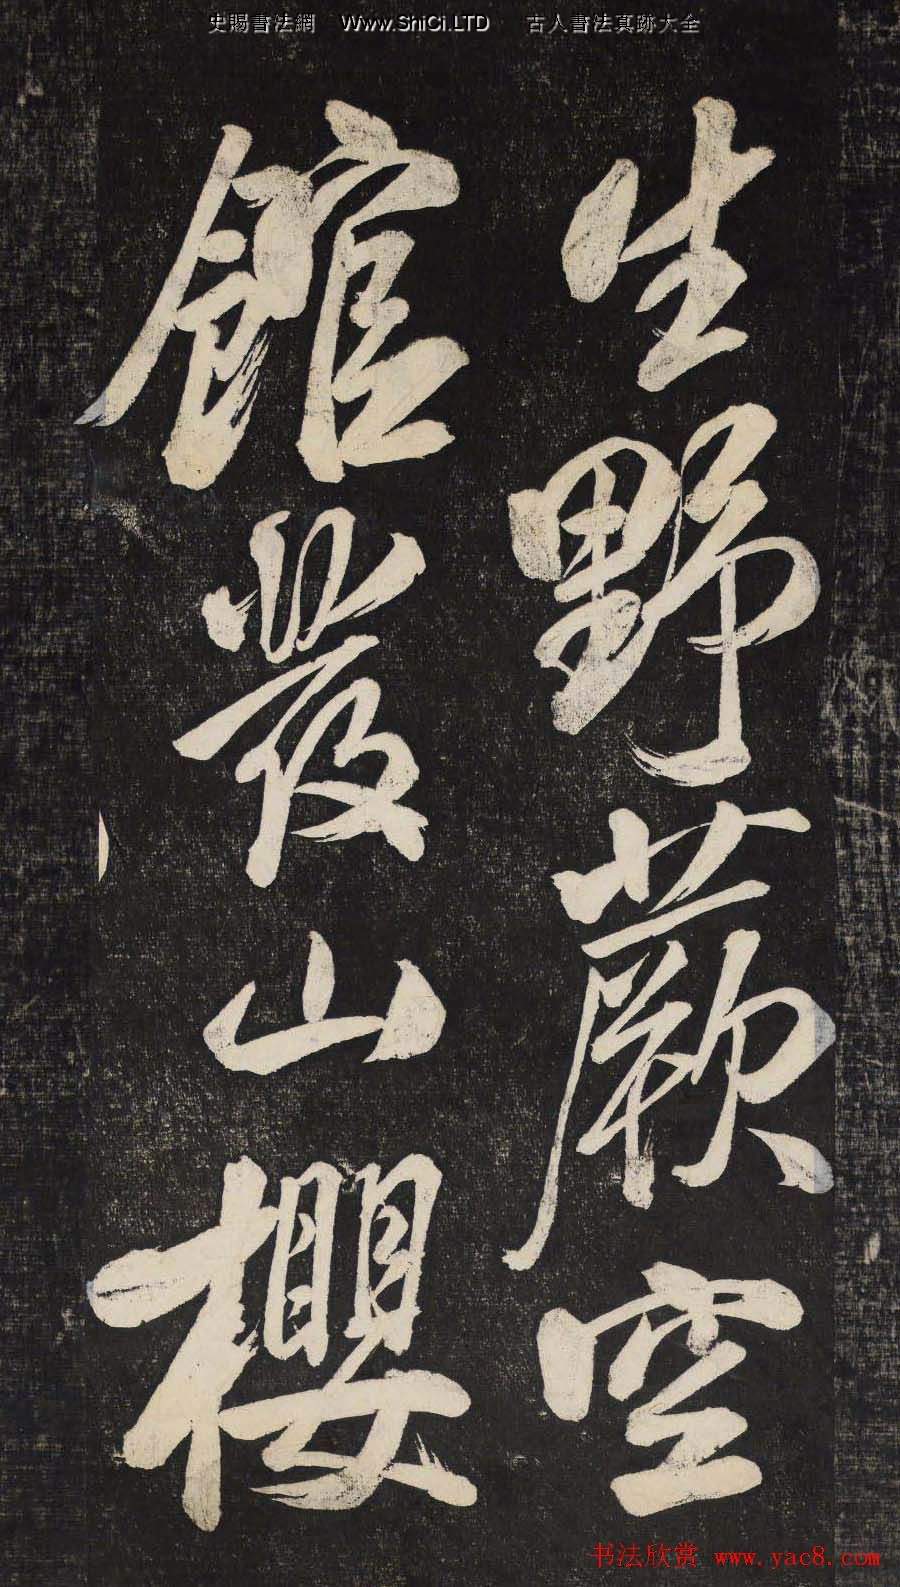 史賜書法網 Www.ShiCi.LTD 古人書法真跡大全
生野蕨空
館發山櫻
书法欣赏 www.yac8.com